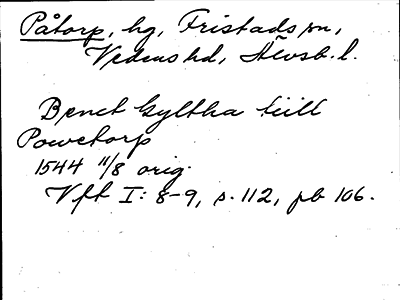 Påtorp, hg, Fristads sn,
Vedens hd, Älvsb. l.
Benct Gyltha tiill
Powetorp
1544 11/8 orig.
Vft I: 8-9, s. 112, pb 106.